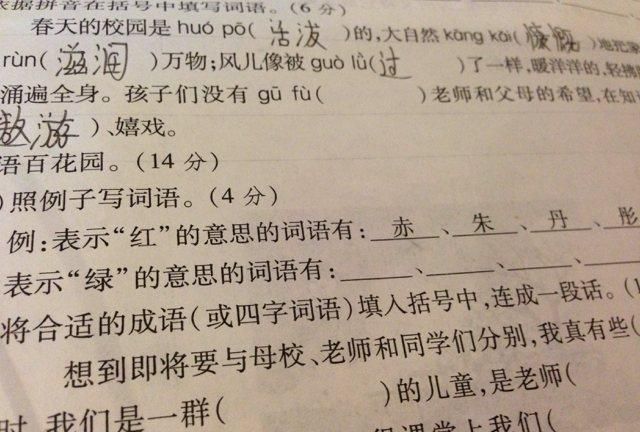 依据拼音在括号中填写词语。(6分)
春天的校园是huó pō(活泼)的,大自然kāng kǎi(慷慨)地把
rùn(滋润)万物;风儿像被guò lǜ(过 )了一样,暖洋洋的,轻拂
涌遍全身。孩子们没有gū fù( )老师和父母的希望,在知
遨游)、嬉戏。
语百花园。(14分)
)照例子写词语。(4分)
例:表示“红”的意思的词语有:赤、朱、丹、彤
表示“绿”的意思的词语有: 、 、 、
将合适的成语(或四字词语)填入括号中,连成一段话。(1
想到即将要与母校、老师和同学们分别,我真有些(
)的儿童,是老师(
时,我们是一群(
课堂上我们(